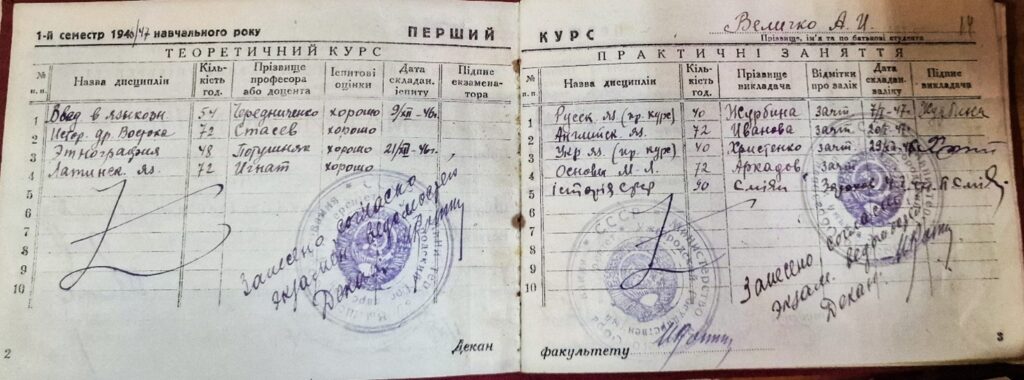 1-й семестр 1946/47 навчального року ПЕРШИЙ
ТЕОРЕТИЧНИЙ КУРС
№ п. п. Назва дисциплін Кіль-кість год. Прізвище професора або доцента Іспитові оцінки Дата складан. іспиту Підпис екзаменатора
1 Введ в языкозн 54 Чередниченко хорошо 9/XII-46г
2 Истор. др. Востока 72 Стасев хорошо
3 Этнография 48 Потушняк хорошо 21/XII-46г
4 Латинск яз. 72 Игнат хорошо
5
6
7
8
9
10
Занесено согласно
экзаменац. ведомостей
Декан
2
Декан
КУРС Величко А И 14
Прізвище, ім'я та по батькові студента
ПРАКТИЧНІ ЗАНЯТТЯ
№ п. п. Назва дисциплін Кіль-кість год. Прізвище викладача Відмітки про залік Дата складан. заліку Підпис викладача
1 Русск яз. (пр. курс) 40 Журбина зачт. 47. Журбина
2 Английск яз. 72 Иванова зачт. 47.
3 Укр яз. (пр. курс) 40 Христенко зачт.
4 Основы М. Л. 72 Аркадов зачт.
5 Історія СРСР 90 Сміян
6
7
8
9
10
Занесено согласно
экзам. ведомостей
Декан
факультету
3